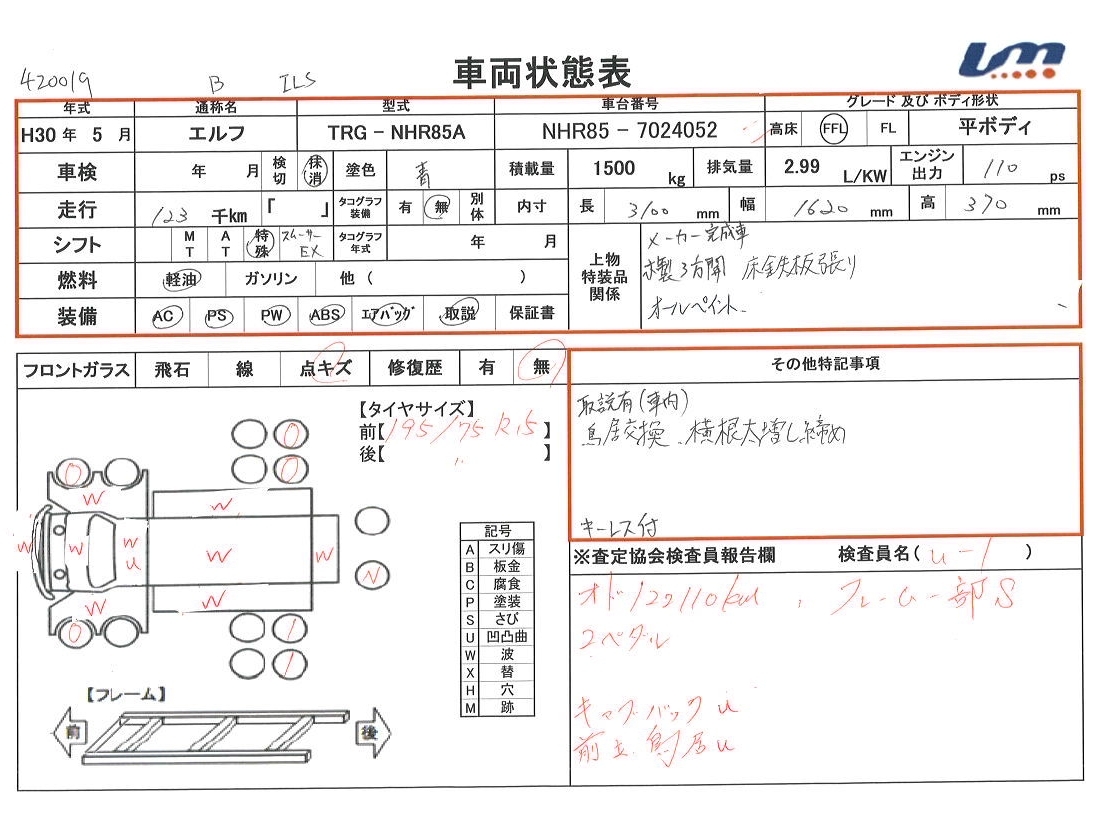 420019 B ILS
車両状態表
年式 通称名 型式 車台番号 グレード 及び ボディ形状
H30 年 5 月 エルフ TRG - NHR85A NHR85 - 7024052 高床 FFL FL 平ボディ
車検 年 月 検切 抹消 塗色 青 積載量 1500 kg 排気量 2.99 L/KW エンジン出力 110 ps
走行 123 千km 「 」 タコグラフ装備 有 無 別体 内寸 長 3100 mm 幅 1620 mm 高 370 mm
シフト MT AT 特殊 スムーサーEX タコグラフ年式 年 月 上物特装品関係 メーカー完成車
木製3方開 床鉄板張り
オールペイント.
燃料 軽油 ガソリン 他 ( )
装備 AC PS PW ABS エアバッグ 取説 保証書
フロントガラス 飛石 線 点キズ 修復歴 有 無
その他特記事項
取説有(車内)
鳥居交換、横根太増し締め
キーレス付
【タイヤサイズ】
前【195/75 R15】
後【 〃 】
W W W U W W W W W W
【フレーム】
前 後
記号
A スリ傷
B 板金
C 腐食
P 塗装
S さび
U 凹凸曲
W 波
X 替
H 穴
M 跡
※査定協会検査員報告欄 検査員名( U-1 )
オド122110km , フレーム一部S
2ペダル
キャブバックU
前立、鳥居U